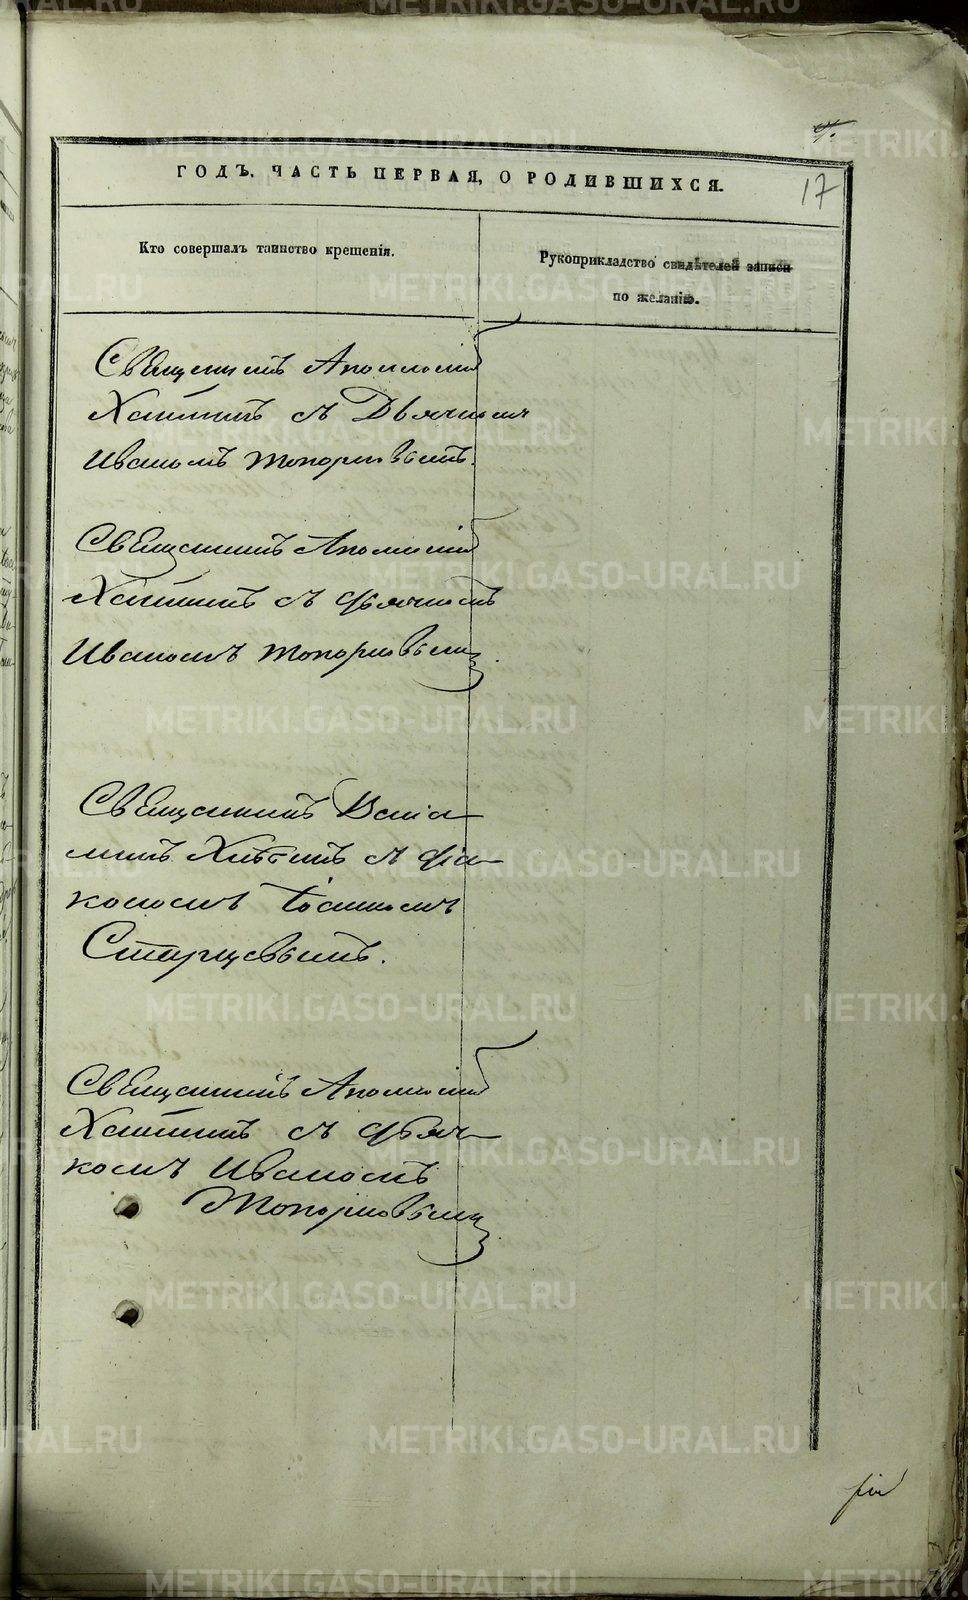 17
ГОДЪ. ЧАСТЬ ПЕРВАЯ, О РОДИВШИХСЯ.
Кто совершалъ таинство крещенія.
Рукоприкладство свидѣтелей записи
по желанію.
Священникъ Аполлоній
съ Дьячкомъ
Иваномъ Топорковымъ.
Священникъ Аполлоній
съ дьячкомъ
Иваномъ Топорковымъ.
Священникъ Веніа-
минъ съ діа-
кономъ Іоанномъ
Старцевымъ.
Священникъ Аполлоній
съ дьяч-
комъ Иваномъ
Топорковымъ
METRIKI.GASO-URAL.RU